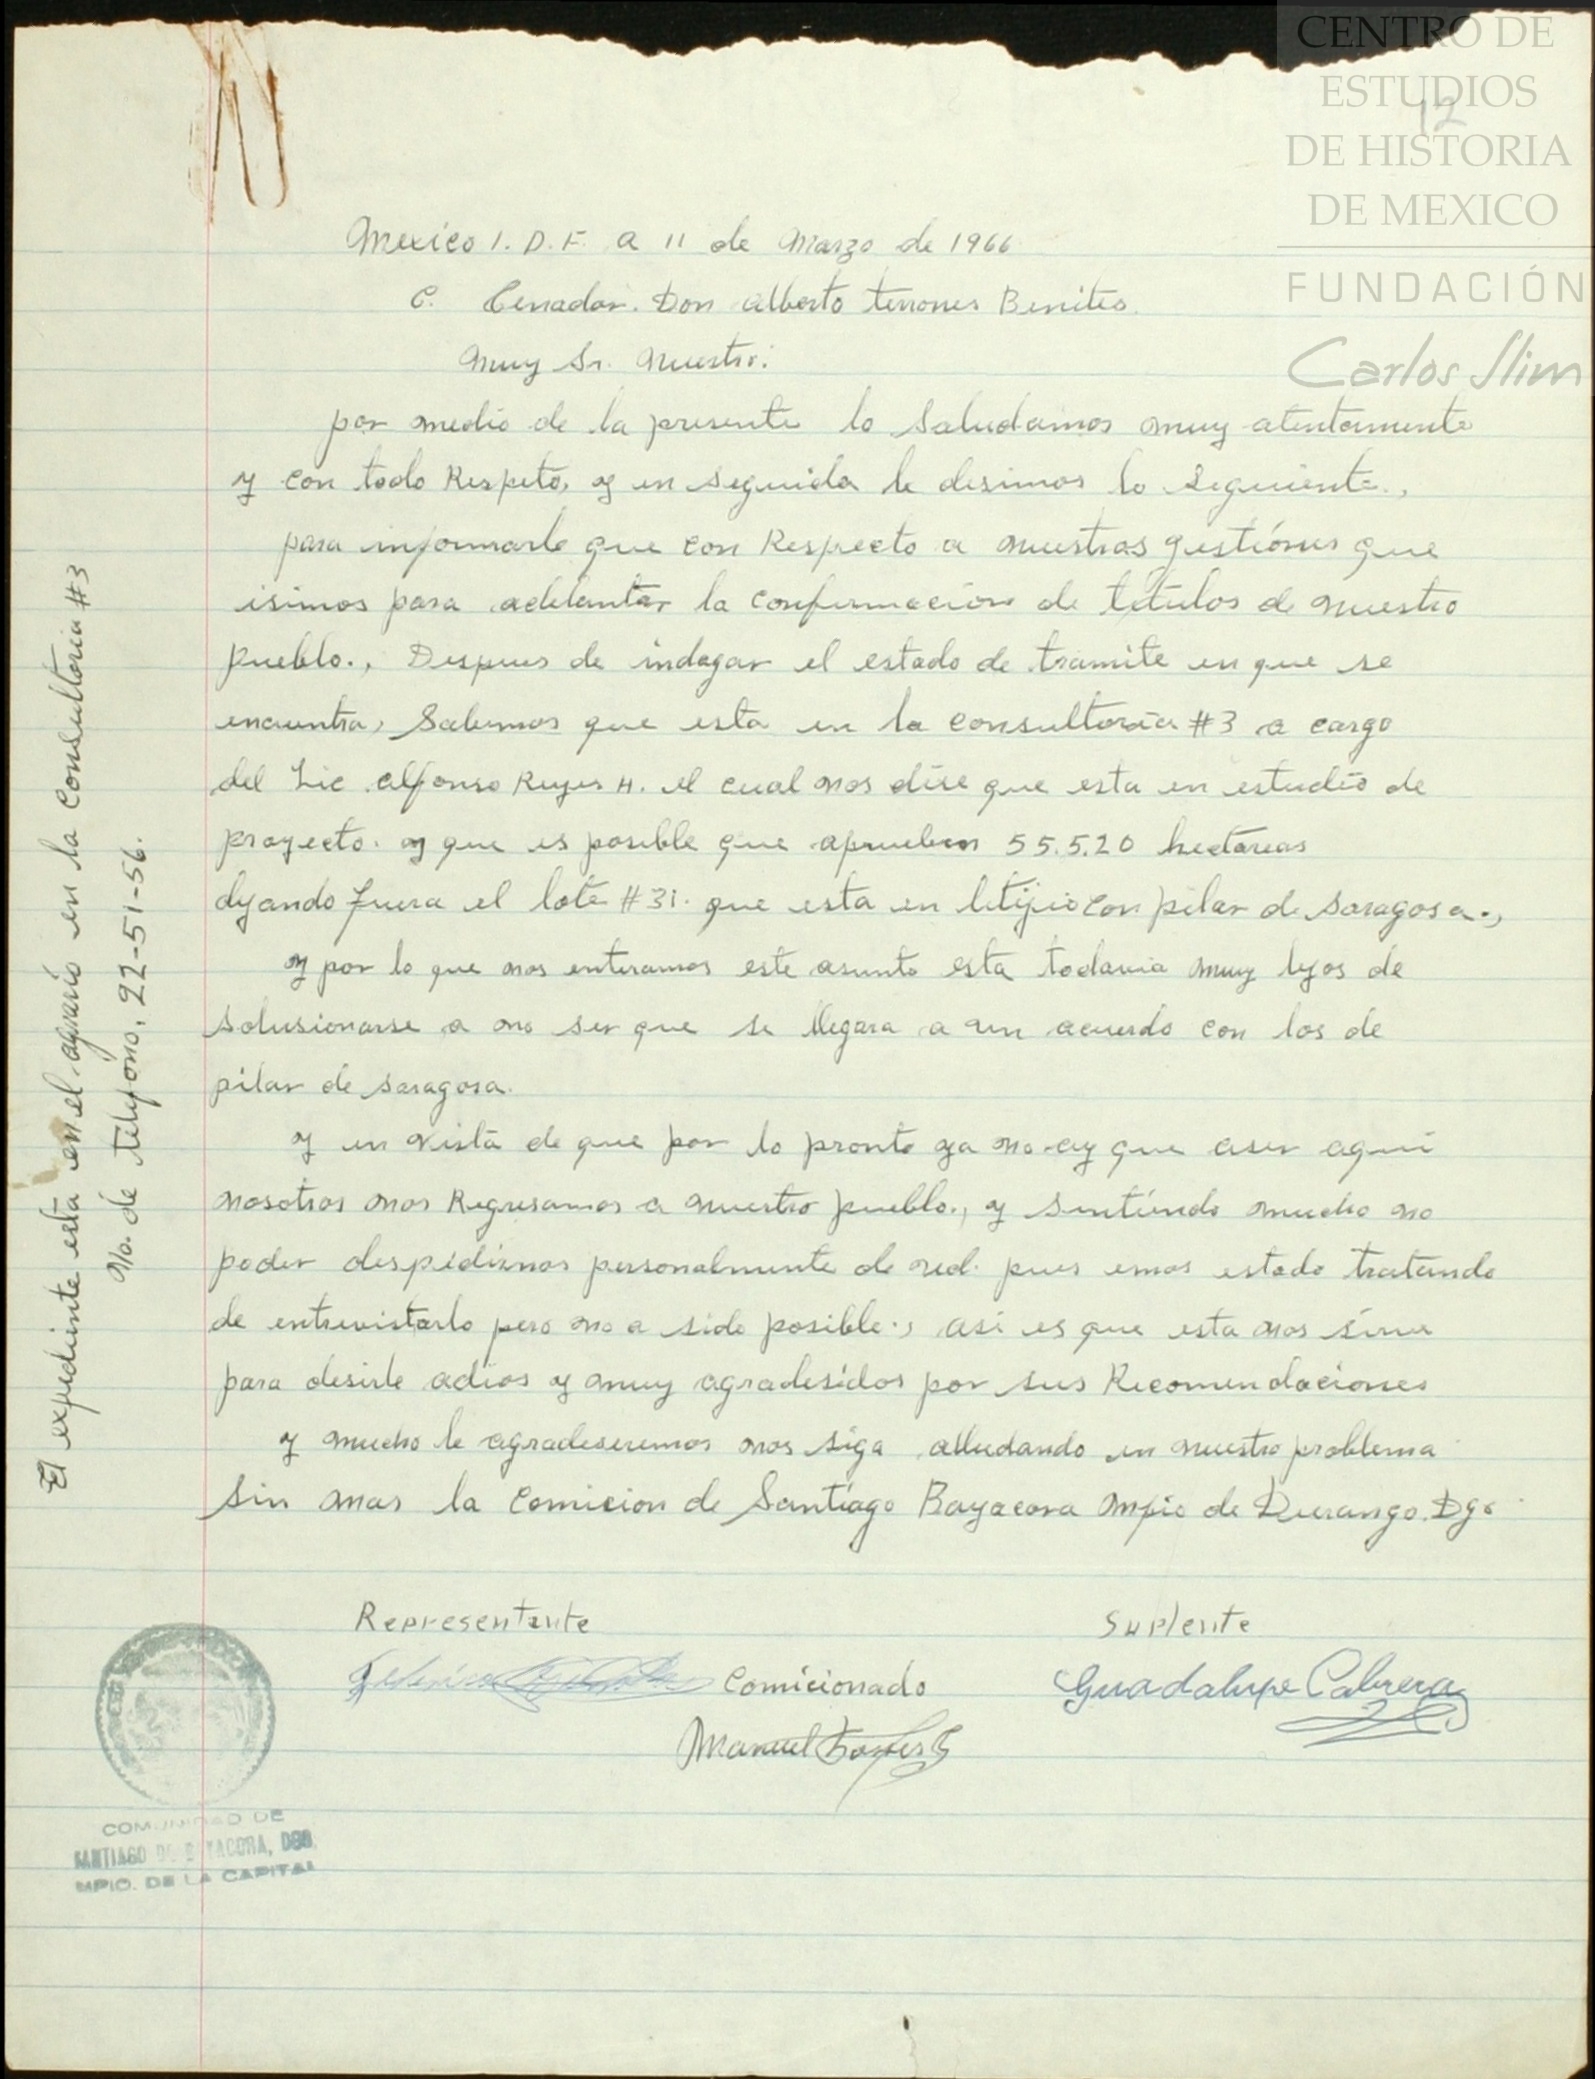 CENTRO DE
ESTUDIOS
DE HISTORIA
DE MEXICO
FUNDACIÓN
Carlos Slim
12
Mexico 1. D.F. a 11 de Marzo de 1966
C. Cenador. Don alberto terrones Benites.
Muy Sr. Nuestro:
por medio de la presente lo Saludamos muy atentamente
y con todo Respeto, y en seguida le desimos lo Siguiente.,
para informarle que con Respecto a nuestras gestiónes que
isimos para adelantar la confirmacion de titulos de nuestro
pueblo., Despues de indagar el estado de tramite en que se
encuentra, Sabemos que esta en la consultoria #3 a cargo
del Lic. alfonso Reyes H. el cual nos dise que esta en estudio de
proyecto. y que es posible que aprueben 55.5.20 hectareas
dejando fuera el lote #31. que esta en litijio con pilar de Saragosa.,
y por lo que nos enteramos este asunto esta todavia muy lejos de
solusionarse a no ser que se llegara a un acuerdo con los de
pilar de saragosa.
y en vista de que por lo pronto ya no ay que aser aqui
nosotros nos Regresamos a nuestro pueblo., y sintiendo mucho no
poder despedirnos personalmente de ud. pues emos estado tratando
de entrevistarlo pero no a sido posible., asi es que esta nos sirve
para desirle adios y muy agradesidos por sus Recomendaciones
y mucho le agradeseremos nos siga alludando en nuestro problema
Sin mas la Comicion de Santiago Bayacora Mpio de Durango. Dgo
Representante
Suplente
Comicionado
Guadalupe Cabrera
Manuel
COMUNIDAD DE
SANTIAGO DE BAYACORA, DGO.
MPIO. DE LA CAPITAL
El expediente esta en el agrario en la Consultoria #3
No. de teléfono, 22-51-56.